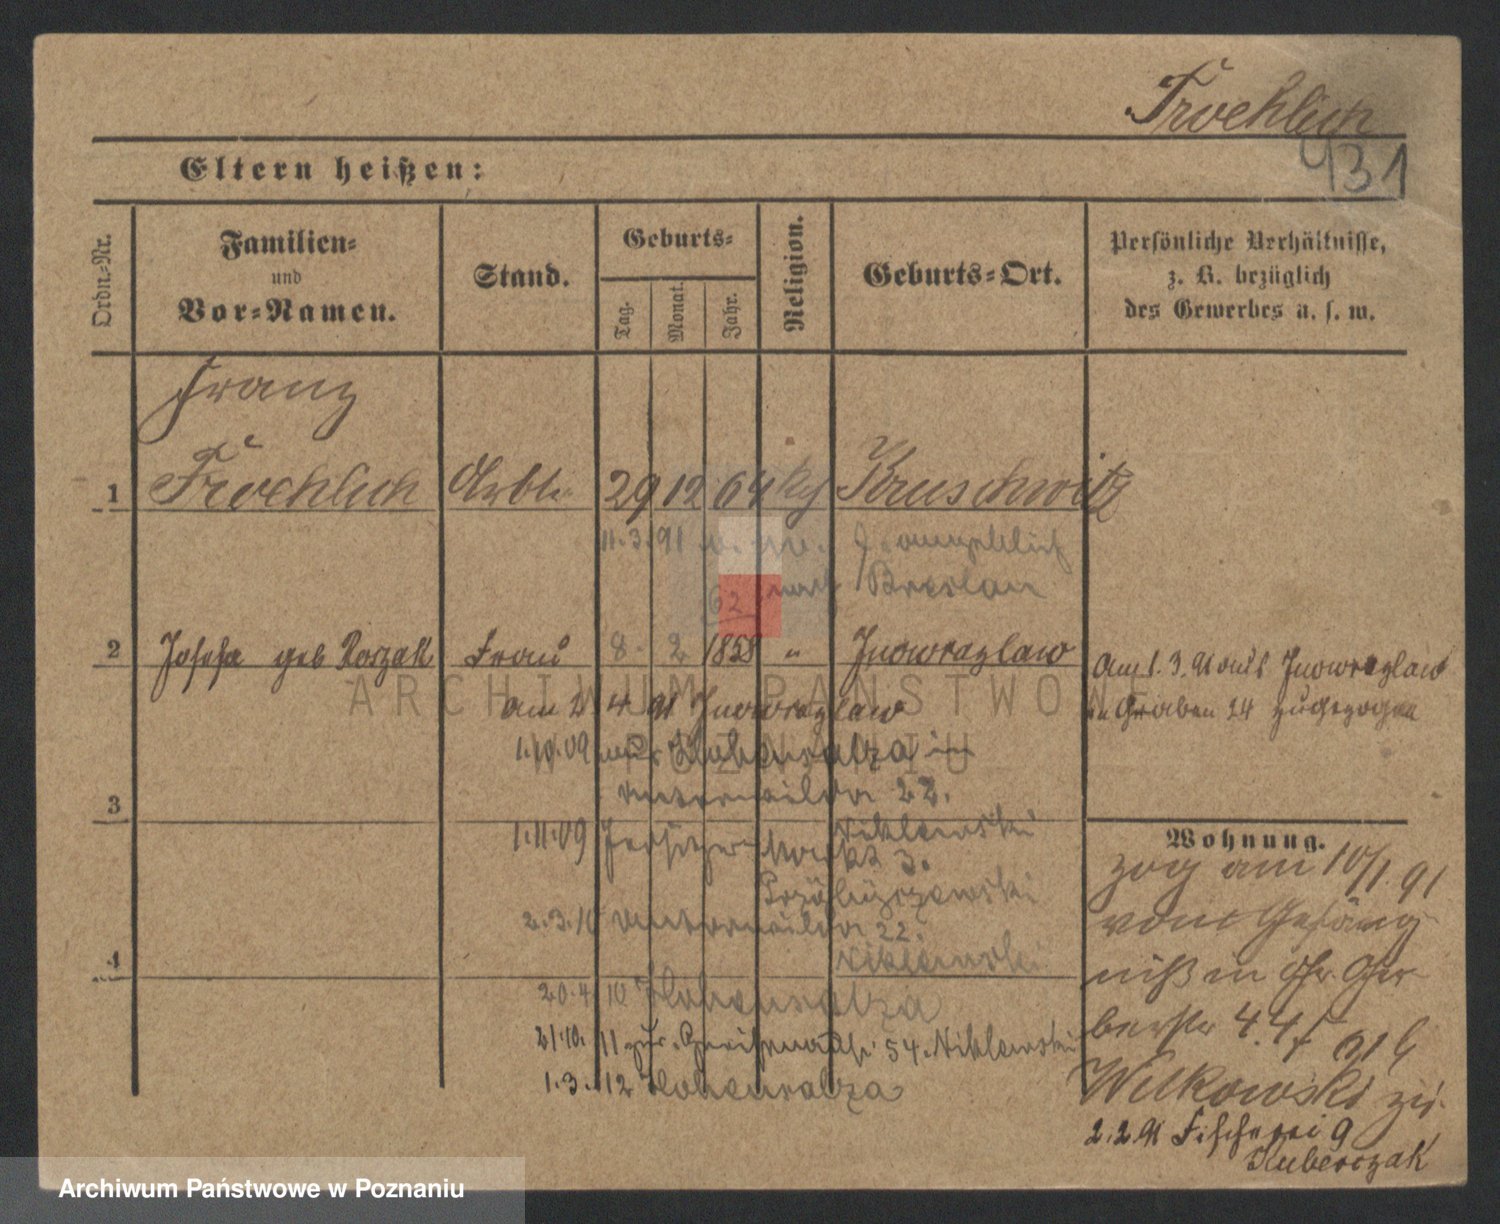 Froehlich
931
Eltern heißen:
Ordn.-Nr.
Familien-
und
Vor-Namen.
Stand.
Geburts-
Tag.
Monat.
Jahr.
Religion.
Geburts-Ort.
Persönliche Verhältnisse,
z. B. bezüglich
des Gewerbes u. s. w.
Franz
1 Froehlich Arbtr. 29 12 64 Kruschwitz
11.3.91 angeblich
nach Breslau
62
2 Josefa geb Roszak Frau 8. 2 1858 " Inowrazlaw
am 1.3.91 aus Inowrazlaw
Graben 24 zugezogen
am 2 4 91 Inowrazlaw
1.10.09 aus Hohensalza in
Unterwilda 22.
3
Niklewski
1.11.09 Jersitzer Markt 3.
2.3.10 Unterwilda 22.
Niklewski
4
20.4.10 Hohensalza
21.10.11 zur. 54. Niklewski
1.3.12 Hohensalza
Wohnung.
zog am 10/1. 91
vom Gefäng
niß in Gr. Ger
berstr 44
Wilkowski zu
2.2.91 Fischerei 9
Kuberczak
ARCHIWUM PAŃSTWOWE
W POZNANIU
Archiwum Państwowe w Poznaniu